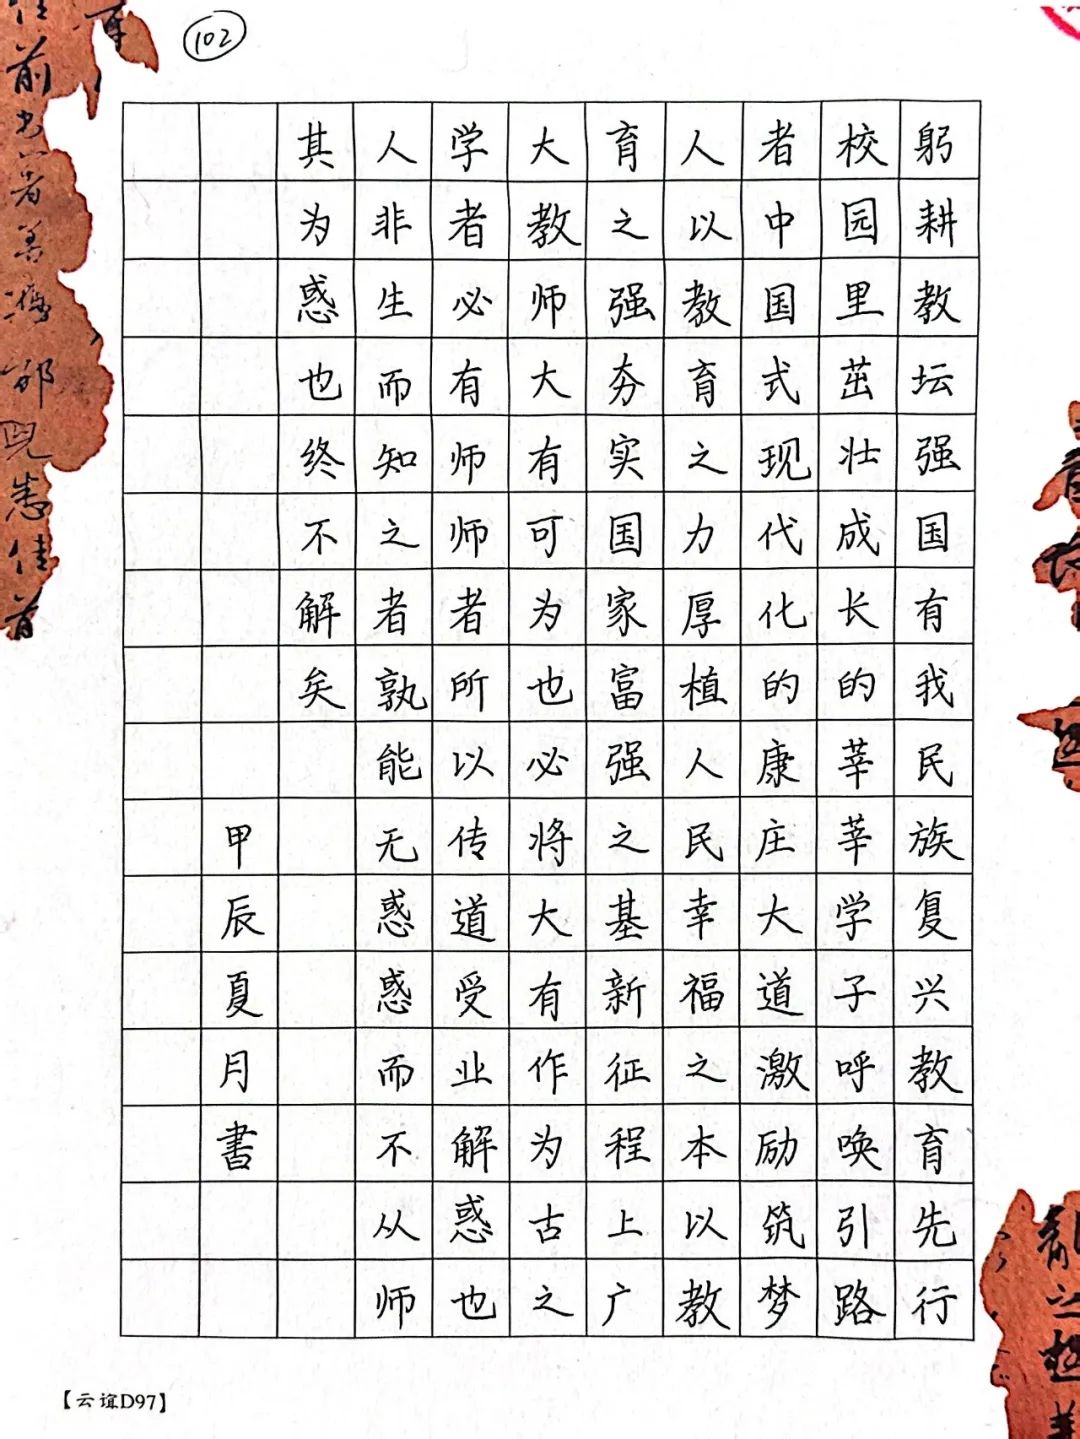 102
躬耕教坛强国有我民族复兴教育先行
校园里茁壮成长的莘莘学子呼唤引路
者中国式现代化的康庄大道激励筑梦
人以教育之力厚植人民幸福之本以教
育之强夯实国家富强之基新征程上广
大教师大有可为也必将大有作为古之
学者必有师师者所以传道受业解惑也
人非生而知之者孰能无惑惑而不从师
其为惑也终不解矣
甲辰夏月書
【云谊D97】